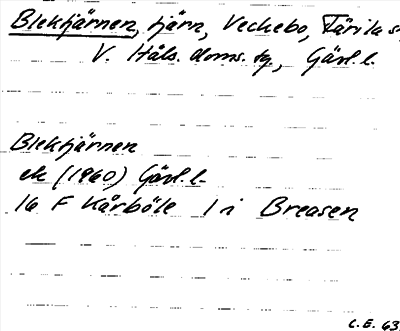 Blektjärnen, tjärn, Veckebo, Färila s.,
V. Häls. doms. tg, Gävl. l.
Blektjärnen
ek (1960) Gävl. l.
16 F Kårböle 1 i Breasen
C.E. 63